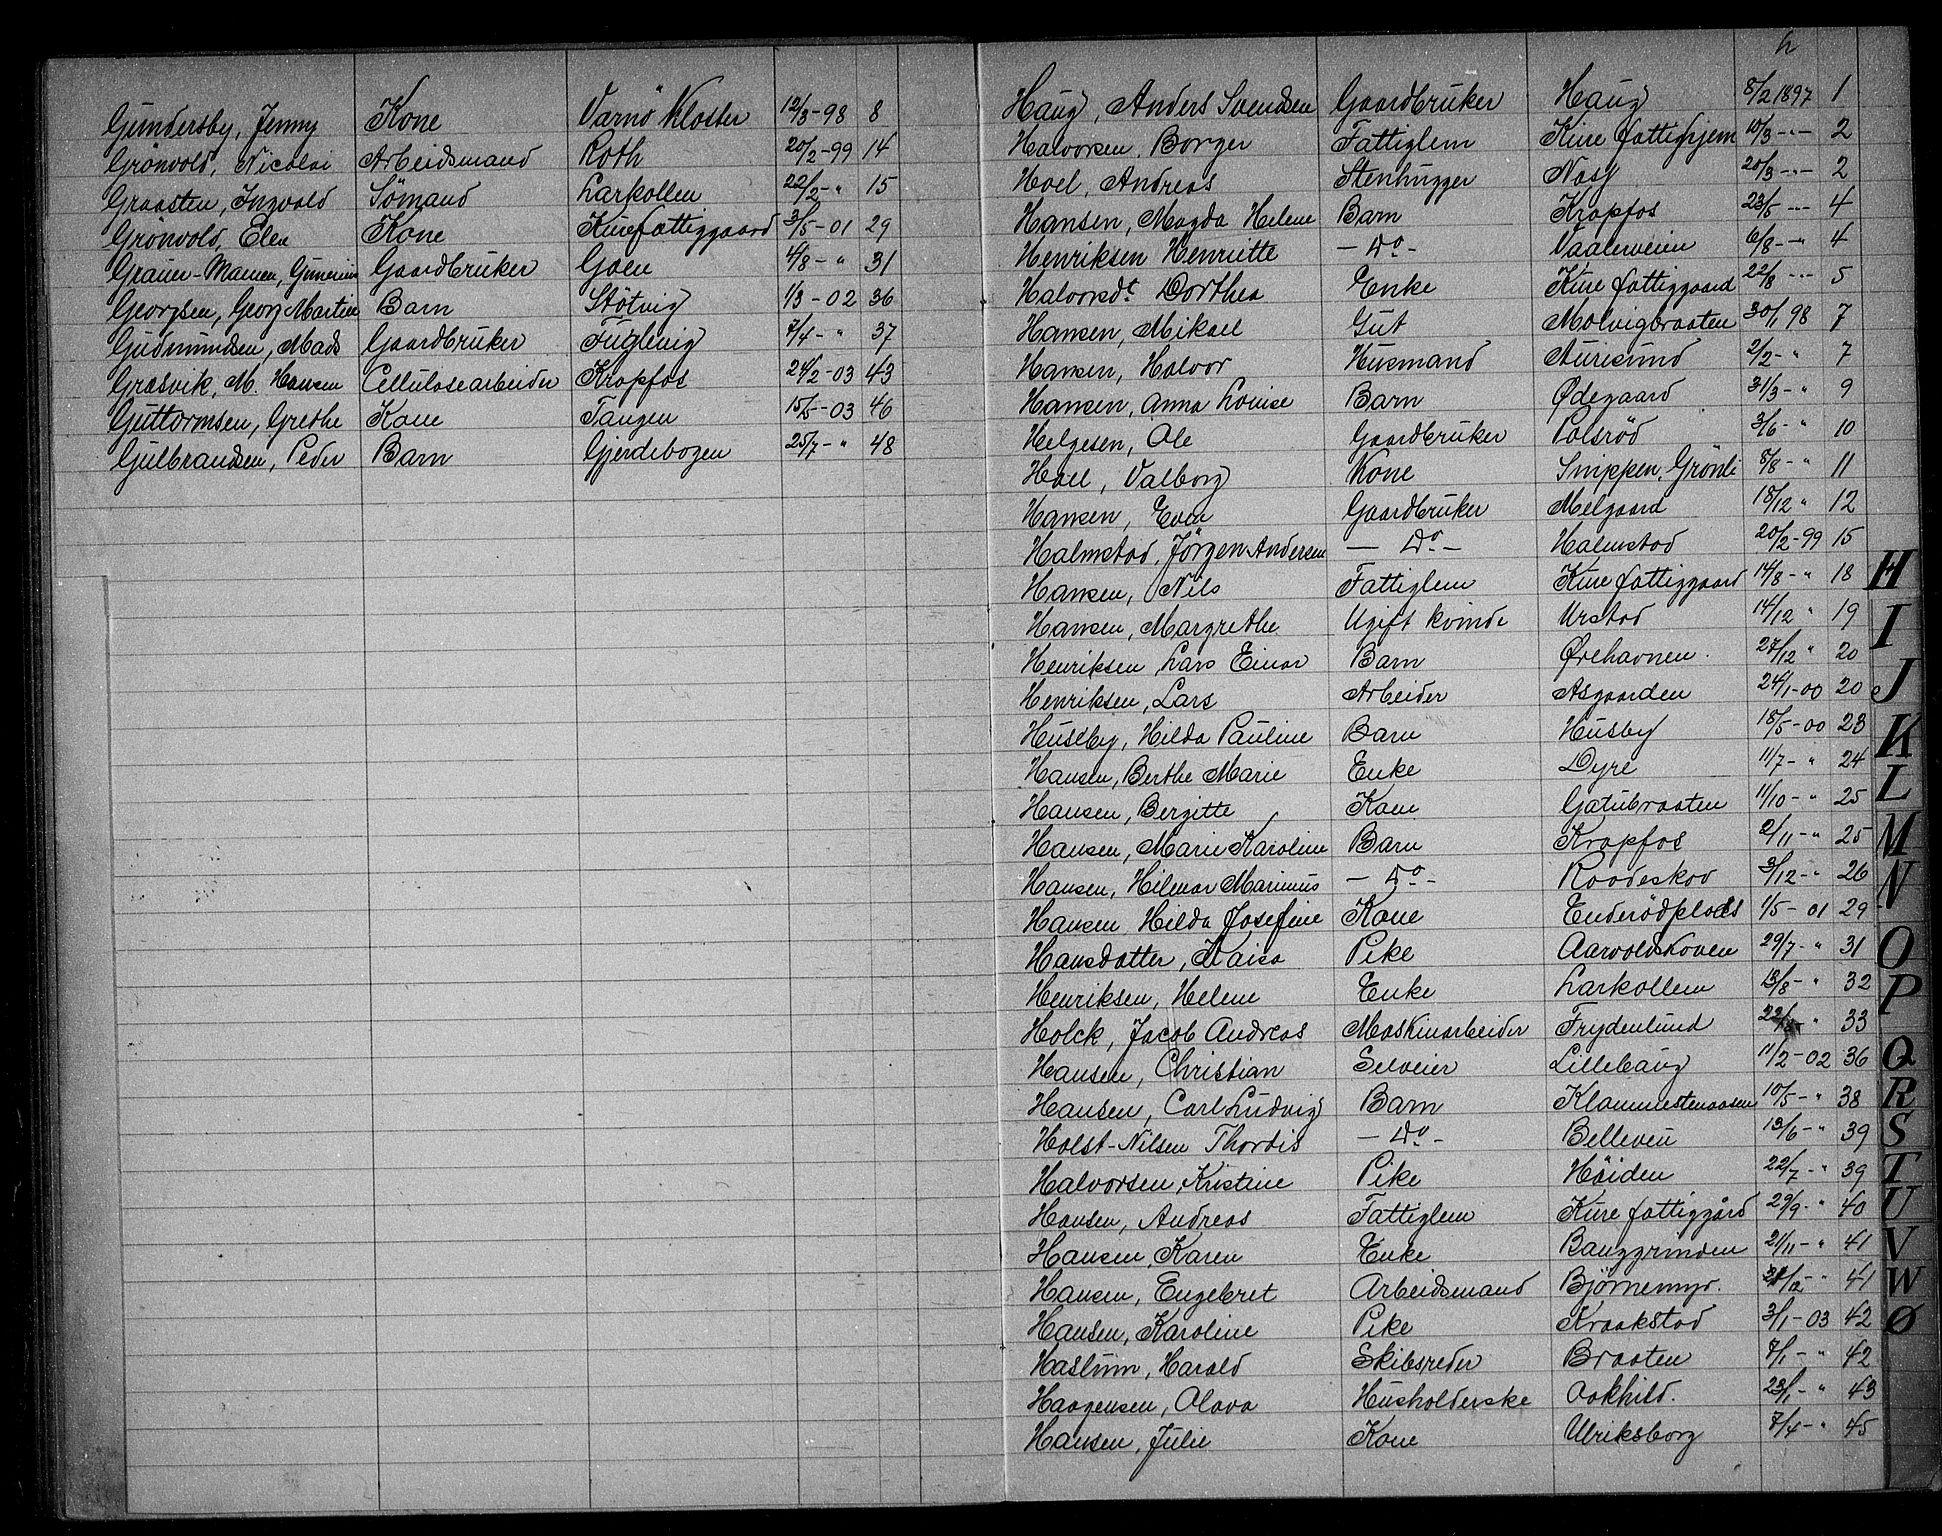 Gundersby, Jenny Kone Varnø Kloster 12/3-98 8
Grönvold, Nicolai Arbeidsmand Roth 20/2-99 14
Graasten, Ingvald Sömand Larkollen 22/2-" 15
Grönvold, Elen Kone Kurefattiggaard 3/5-01 29
Grauer-Mamen, Gunerius Gaardbruker Goen 4/8-" 31
Georgsen, Georg Martin Barn Stötvig 1/3-02 36
Gudmundsen, Mads Gaardbruker Fuglevig 7/4-" 37
Græsvik, M. Hansen Cellulosearbeider Kropfos 24/2-03 43
Guttormsen, Grethe Kone Tangen 15/5-03 46
Gulbrandsen, Peder Barn Gjerdebogen 25/7-" 48
h
Haug, Anders Svendsen Gaardbruker Haug 8/2 1897 1
Halvorsen, Borger Fattiglem Kure fattighjem 10/3-"- 2
Hoel, Andreas Stenhugger Nøsf 20/3-"- 2
Hansen, Magda Helene Barn Kropfos 23/5-"- 4
Henriksen Henriette -Do- Vaalerveien 6/8-"- 4
Halvorsdt. Dorthea Enke Kure fattiggaard 22/8-"- 5
Hansen, Mikael Gut Molvigbraaten 30/1 98 7
Hansen, Halvor Husmand Aurisund 2/2-" 7
Hansen, Anna Louise Barn Ødegaard 31/3-" 9
Helgesen, Ole Gaardbruker Polsrød 3/6-" 10
Hall, Valborg Kone Snippen, Grönli 8/8-" 11
Hansen, Even Gaardbruker Melgaard 18/12 " 12
Halmstad, Jörgen Andersen -Do- Halmstad 20/2-99 15
Hansen, Nils Fattiglem Kure fattiggaard 14/8-" 18
Hansen, Margrethe Ugift kvinde Urstad 14/12 " 19
Henriksen, Lars Einar Barn Ørehavnen. 27/12 " 20
Henriksen, Lars Arbeider Asgaarden 24/1-00 20
Huseby, Hilda Pauline Barn Husby 18/5-00 23
Hansen, Berthe Marie Enke Dyre 11/7-" 24
Hansen, Bergitte Kone Gatubraaten 11/10-" 25
Hansen, Marie Karoline Barn Kropfos 2/11-" 25
Hansen, Hilmar Marinius -Do- Raadeskov 3/12-" 26
Hansen Hilda Josefine Kone Enderödplads 1/5-01 29
Hansdatter, Kaisa Pike Aarvoldskoven 29/7-" 31
Henriksen, Helene Enke Larkollen 13/8-" 32
Holck, Jacob Andreas Maskinarbeider Frydenlund 22/ " 33
Hansen, Christian Selveier Lillehaug 11/2-02 36
Hansen, Carl Ludvig Barn Klommestenaasen 10/5-" 38
Holst-Nilsen Thordis -Do- Belleveu 13/6-" 39
Halvorsen, Kristine Pike Höiden 22/7-" 39
Hansen, Andreas Fattiglem Kure fattiggård 29/9-" 40
Hansen, Karen Enke Bauggrinden 21/11-" 41
Hansen, Engebret Arbeidsmand Björnemyr. 31/12-" 41
Hansen, Karoline Pike Kraakstad 3/1-03 42
Haslum, Harald Skibsreder Braaten 7/1-" 42
Haagensen, Olava Husholderske Aakhild. 23/1-" 43
Hansen, Julie Kone Ulriksborg 7/4-" 45
H
I
J
K
L
M
N
O
P
Q
R
S
T
U
V
W
Ø